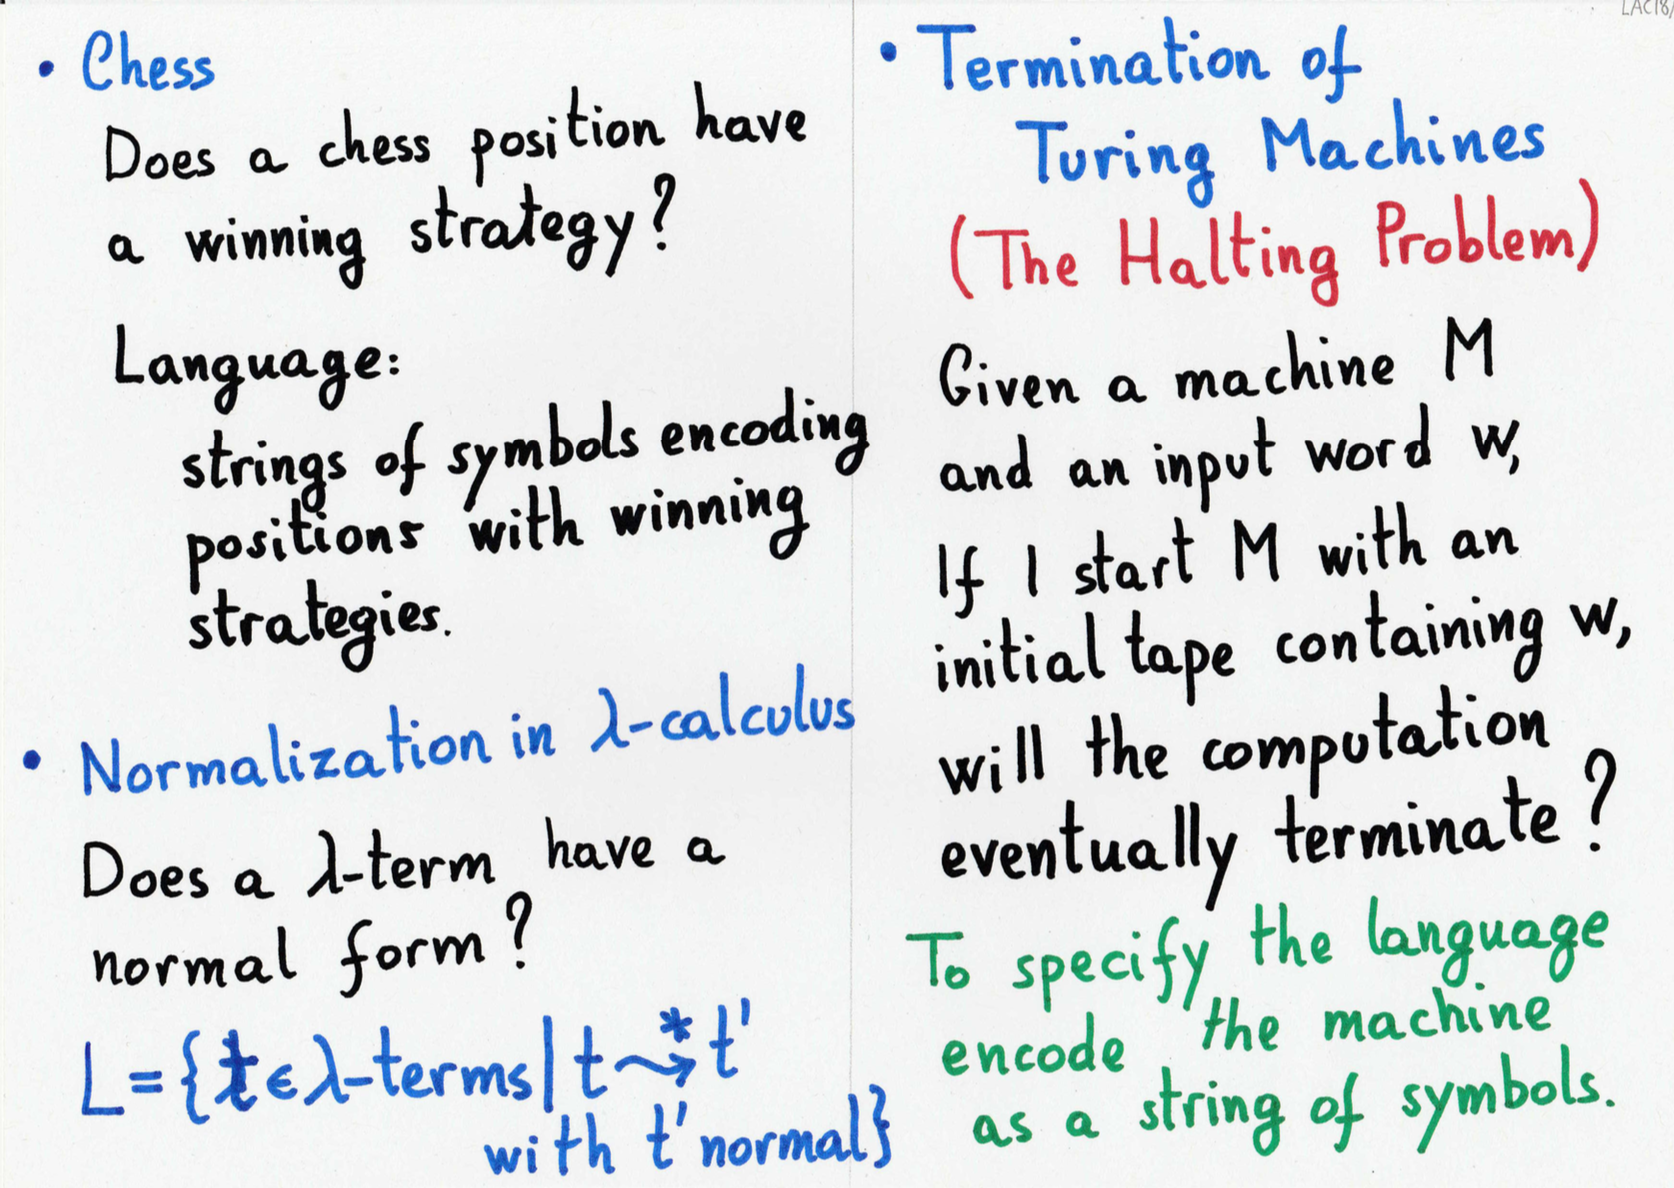 • Chess
Does a chess position have
a winning strategy?
Language:
strings of symbols encoding
positions with winning
strategies.
• Normalization in λ-calculus
Does a λ-term have a
normal form?
L = {t ∈ λ-terms | t ⇝* t'
with t' normal}
LAC18/
• Termination of
Turing Machines
(The Halting Problem)
Given a machine M
and an input word w,
If I start M with an
initial tape containing w,
will the computation
eventually terminate?
To specify the language
encode the machine
as a string of symbols.